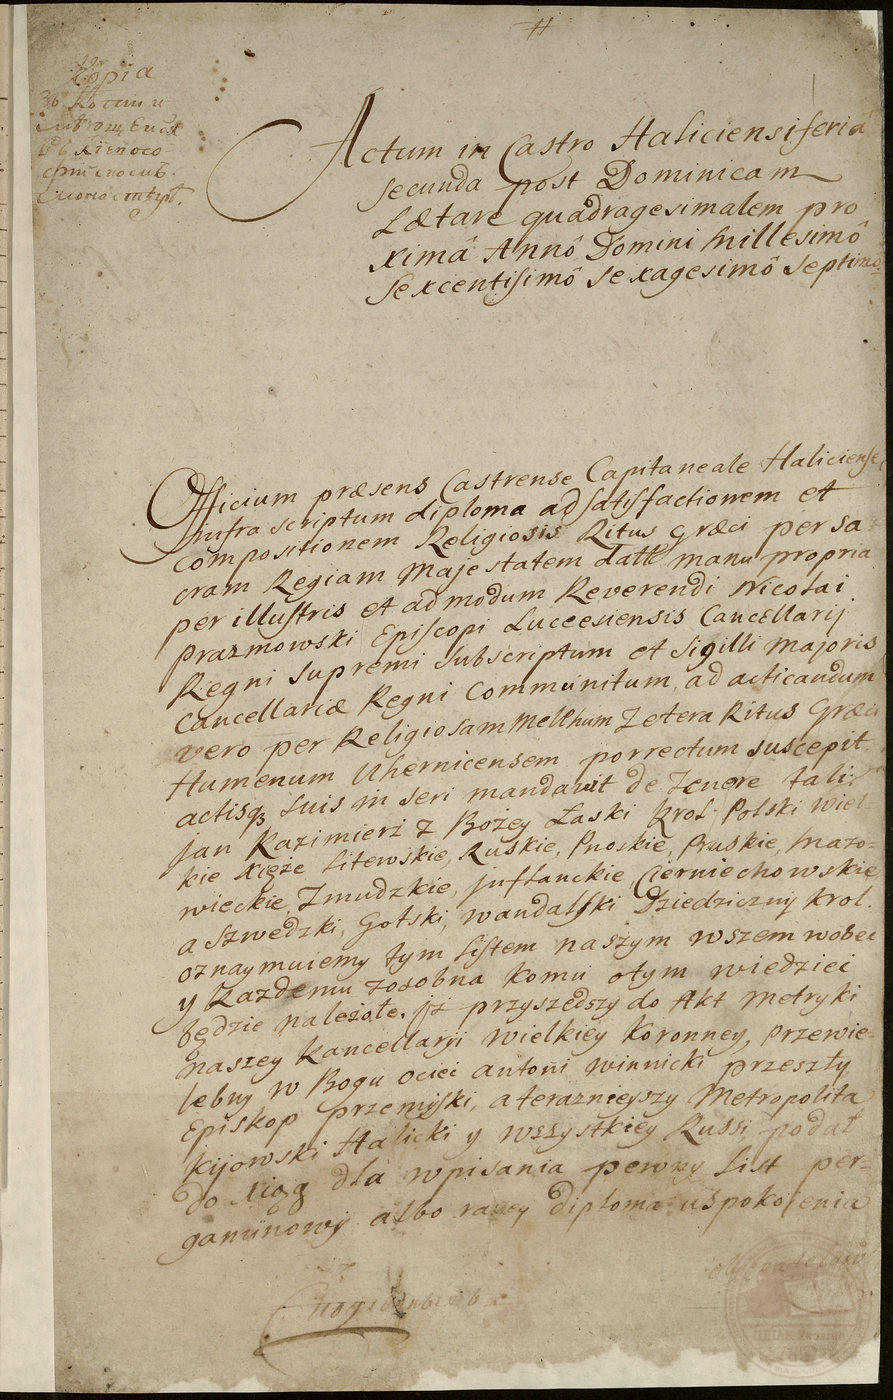 Copia
Actum in Castro Haliciensi feria
secunda post Dominicam
Lætare quadragesimalem pro
ximâ Annô Domini Millesimô
sexcentisimô sexagesimô septimo
Officium præsens Castrense Capitaneale Haliciense
infra scriptum diploma ad satisfactionem et
compositionem Religiosis Ritus Græci per sa
cram Regiam Majestatem datt manu propria
per illustris et admodum Reverendi Nicolai
Prazmowski Episcopi Luceesiensis Cancellarij
Regni supremi subscriptum et sigilli Majoris
Cancellariæ Regni Communitum, ad acticandum
vero per Religiosam Zetera Ritus Græci
Humenum Uhernicensem porrectum suscepit
actisq suis in seri mandavit de Tenore tali:
Jan Kazimierz z Bożey Łaski Krol Polski Wiel-
kie Xięże Litewskie, Ruskie, Pruskie, Mazo-
wieckie, Zmudzkie, Juflanckie, Czerniechowskie
a Szwedzki, Gotski, wandalski Dziedziczny Krol.
oznaymuiemy tym Listem naszym wszem wobec
y Kazdemu zosobna komu otym wiedziec
będzie należołe. Jż przyszedszy do Akt Metryki
naszey Kancellaryi wielkiey Koronney, przewie-
lebny w Bogu ociec antoni winnicki przeszły
Episkop przemyski, a teraznieyszy Metropolita
Kijowski Halicki y wszystkiey Russi podał
do Xiąg dla wpisania pewny List per-
gaminowy albo raczey diploma uspokojenia